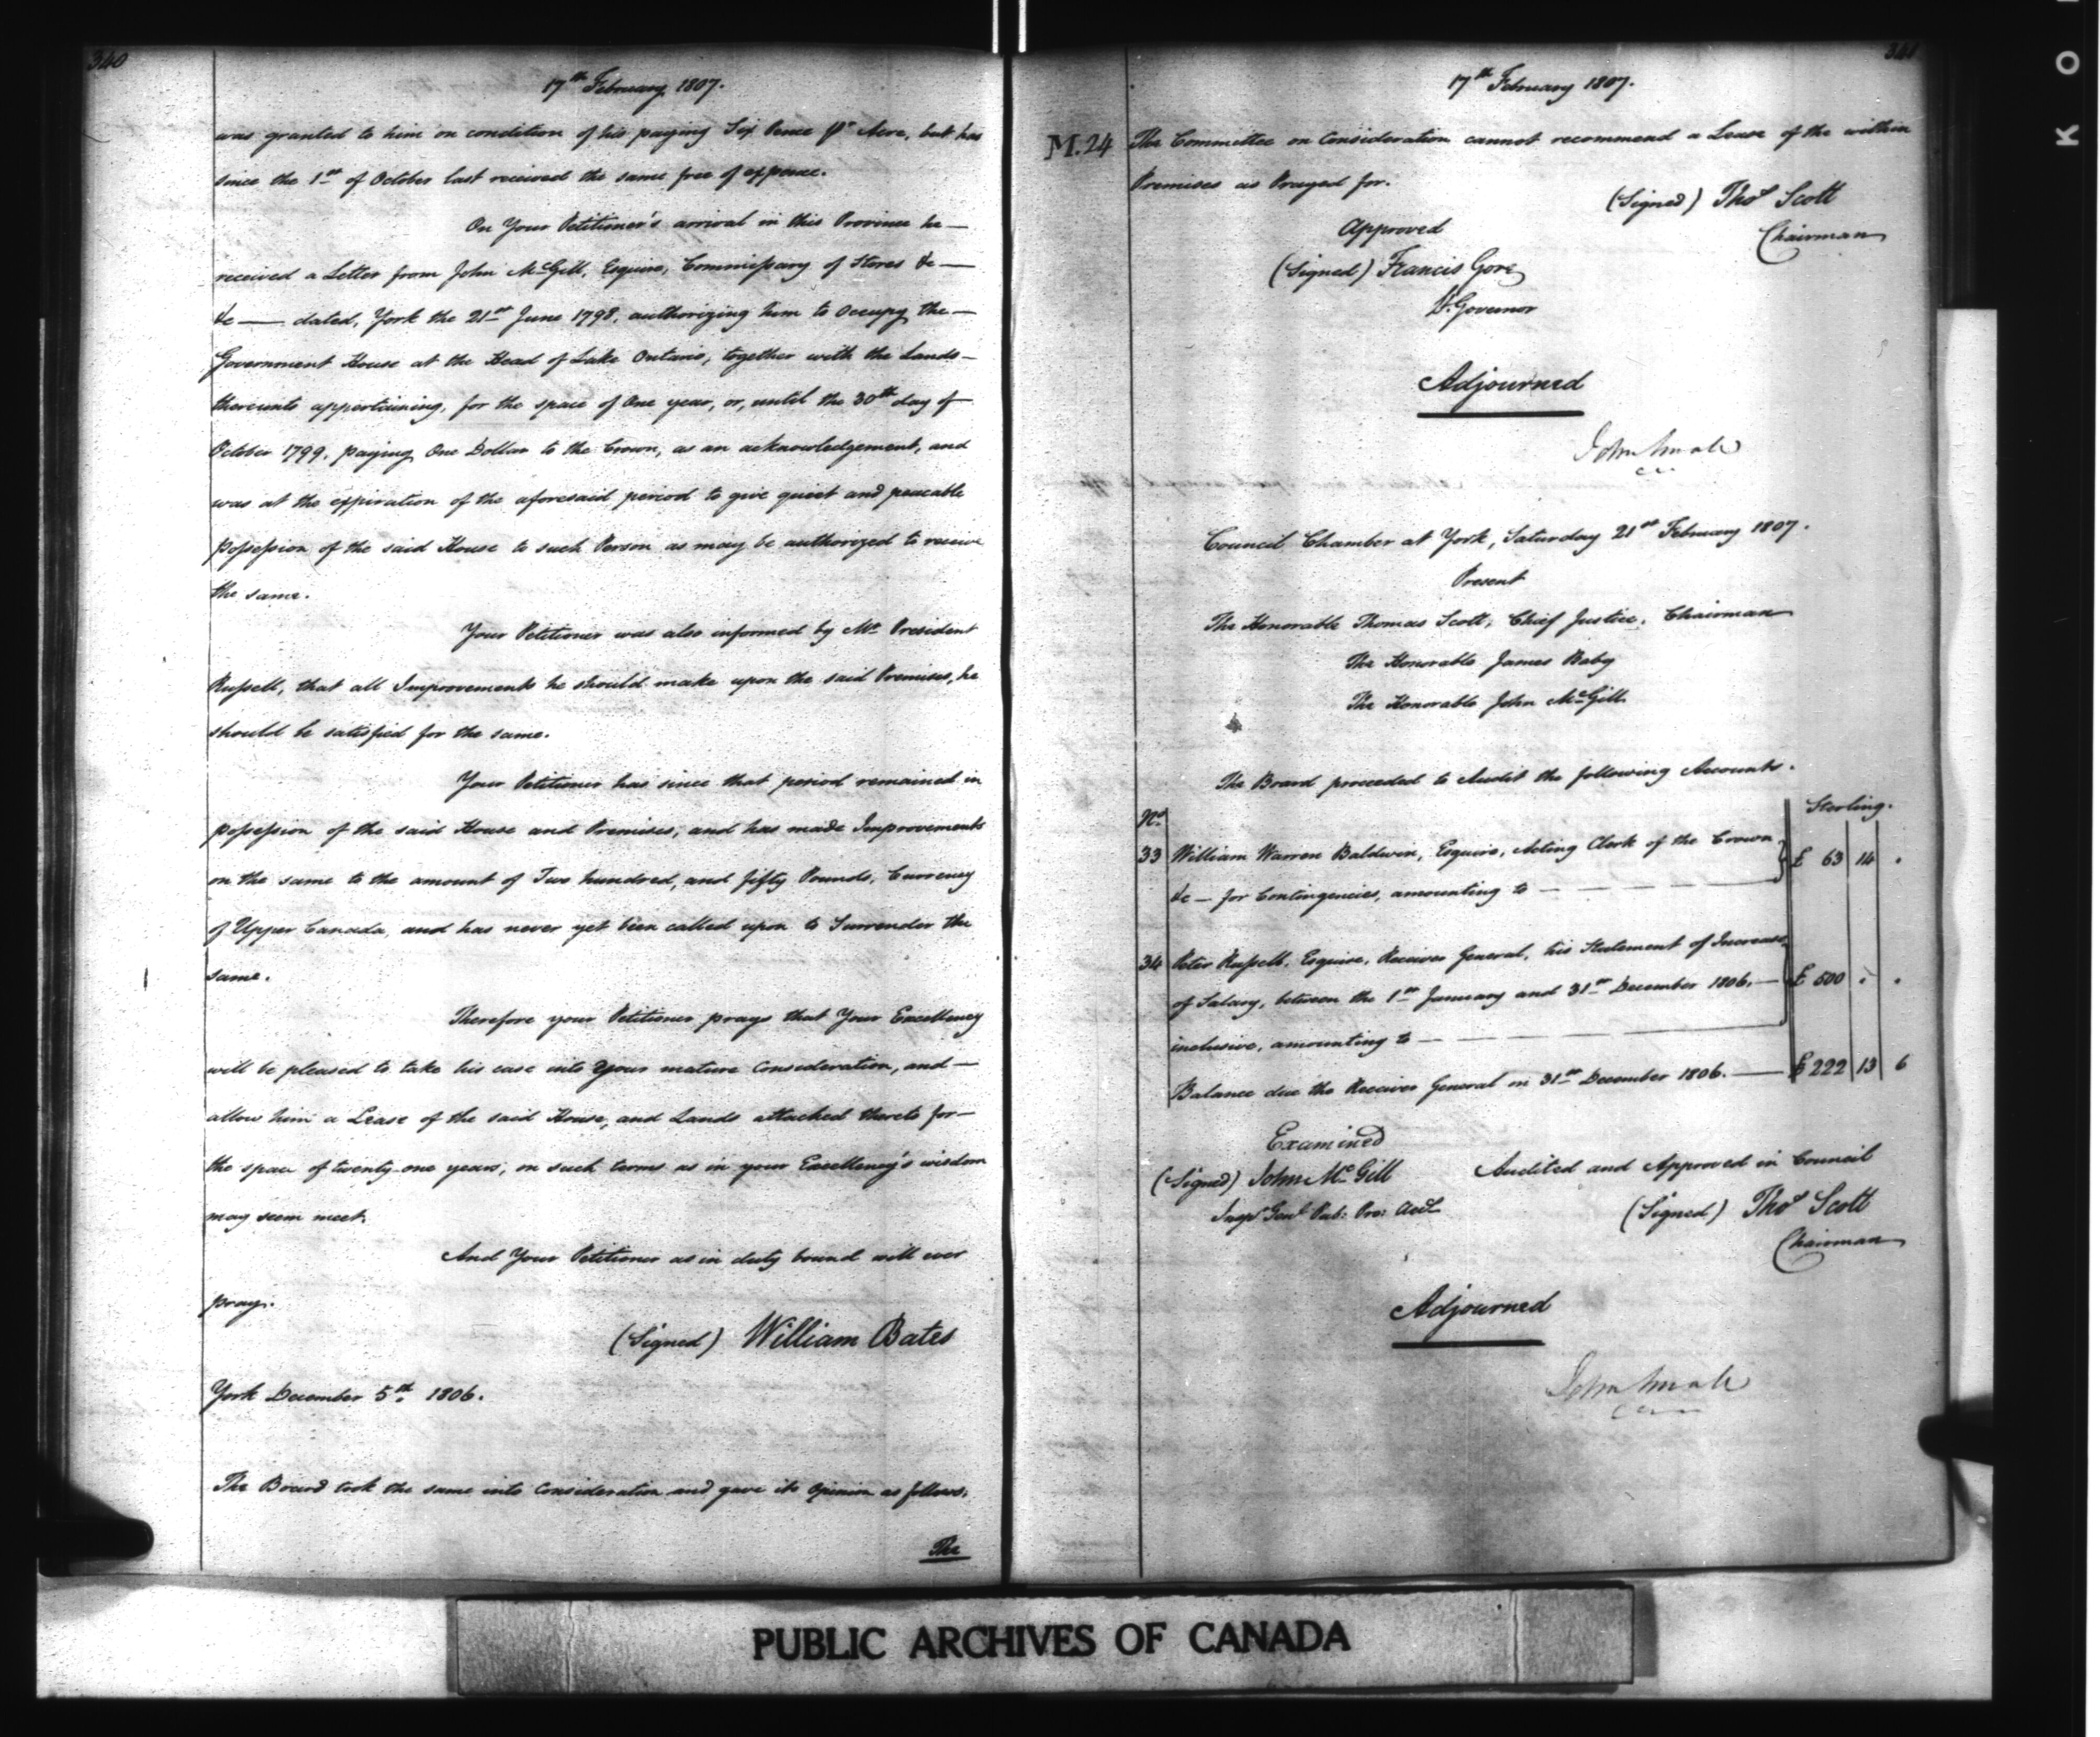 340
17th February 1807.
was granted to him on condition of his paying Six Pence pr Acre, but has
since the 1st of October last received the same free of expence.
On Your Petitioner's arrival in this Province he —
received a Letter from John McGill, Esquire, Commissary of Stores &c —
&c — dated, York the 21st June 1798, authorizing him to Occupy the —
Government House at the Head of Lake Ontario, together with the Lands —
thereunto appertaining, for the space of One year, or, until the 30th day of
October 1799, paying One Dollar to the Crown, as an acknowledgement, and
was at the expiration of the aforesaid period to give quiet and peaceable
possession of the said House to such Person as may be authorized to receive
the same.
Your Petitioner was also informed by Mr President
Russell, that all Improvements he should make upon the said Premises, he
should be satisfied for the same.
Your Petitioner has since that period remained in
possession of the said House and Premises, and has made Improvements
on the same to the amount of Two hundred, and fifty Pounds, Currency
of Upper Canada, and has never yet been called upon to Surrender the
same.
Therefore your Petitioner prays that Your Excellency
will be pleased to take his case into Your mature Consideration, and —
allow him a Lease of the said House, and Lands attached thereto for —
the space of twenty-one years, on such terms as in your Excellency's wisdom
may seem meet.
And Your Petitioner as in duty bound will ever
pray.
(Signed) William Bates
York December 5th 1806.
The Board took the same into Consideration and gave its Opinion as follows,
The
341
17th February 1807.
M.24 The Committee on Consideration cannot recommend a Lease of the within
Premises as Prayed for.
(Signed) Thos Scott
Chairman
Approved
(Signed) Francis Gore
Lt Governor
Adjourned
John Small
Council Chamber at York, Saturday 21st February 1807.
Present
The Honorable Thomas Scott, Chief Justice, Chairman
The Honorable James Baby
The Honorable John McGill
The Board proceeded to Audit the following Accounts.
No Sterling.
33 William Warren Baldwin, Esquire, Acting Clerk of the Crown
&c — for Contingencies, amounting to — — — — £ 63 14 .
34 Peter Russell, Esquire, Receiver General, his Statement of Increase
of Salary, between the 1st January and 31st December 1806, — £ 500 . .
inclusive, amounting to — — — —
Balance due the Receiver General on 31st December 1806. — £ 222 13 6
Examined
(Signed) John McGill
Inspr Genl Pub: Pro: Acct
Audited and Approved in Council
(Signed) Thos Scott
Chairman
Adjourned
John Small
PUBLIC ARCHIVES OF CANADA
K O